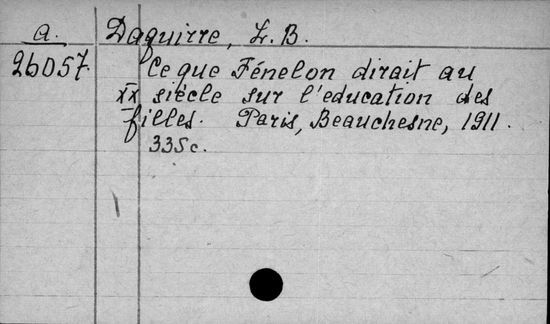 a. Daguirre, L. B.
26057. Ce que Fénelon dirait au
XX siècle sur l'education des
filles. Paris, Beauchesne, 1911.
335c.